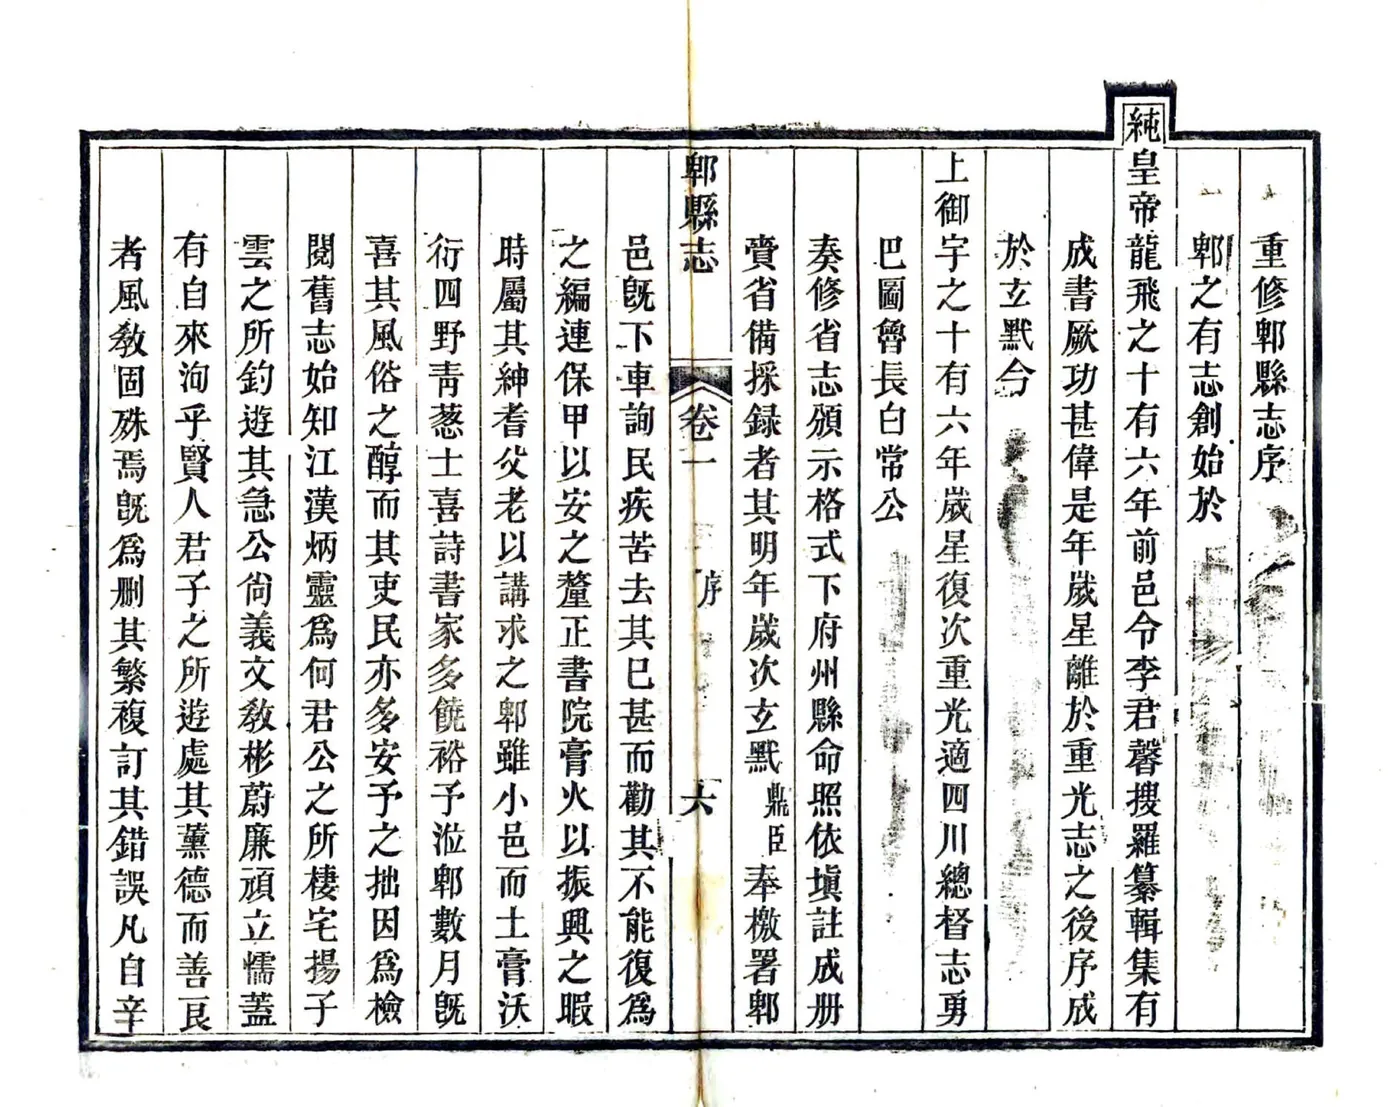 重修郫縣志序
郫之有志創始於
純皇帝龍飛之十有六年前邑令李君馨搜羅纂輯集有
成書厥功甚偉是年歲星離於重光志之後序成
於玄默今
上御宇之十有六年歲星復次重光適四川總督志勇
巴圖魯長白常公
奏修省志頒示格式下府州縣命照依塡註成册
賫省備採録者其明年歲次玄默鼎臣奉檄署郫
郫縣志
卷一
序
六
邑旣下車詢民疾苦去其已甚而勸其不能復爲
之編連保甲以安之釐正書院膏火以振興之暇
時屬其紳耆父老以講求之郫雖小邑而土膏沃
衍四野靑葱士喜詩書家多饒裕予涖郫數月旣
喜其風俗之醇而其吏民亦多安予之拙因爲檢
閱舊志始知江漢炳靈爲何君公之所棲宅揚子
雲之所釣遊其急公尙義文敎彬蔚廉頑立懦蓋
有自來洵乎賢人君子之所遊處其薰德而善良
者風敎固殊焉旣爲删其繁複訂其錯誤凡自辛